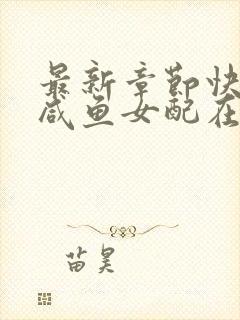 最新章节快
咸鱼女配在
苗昊